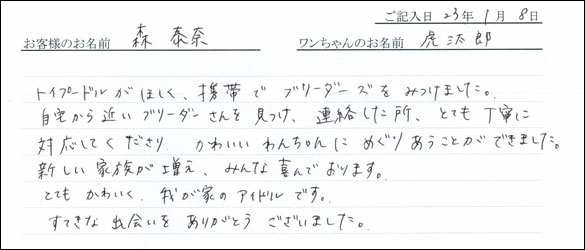 ご記入日 23年 1月 8日
お客様のお名前 森 泰奈 ワンちゃんのお名前 虎汰郎
トイプードルがほしく、携帯でブリーダーズをみつけました。
自宅から近いブリーダーさんを見つけ、連絡した所、とても丁寧に
対応してくださり かわいいわんちゃんに めぐりあうことができました。
新しい家族が増え、みんな喜んでおります。
とてもかわいく、我が家のアイドルです。
すてきな出会いをありがとうございました。